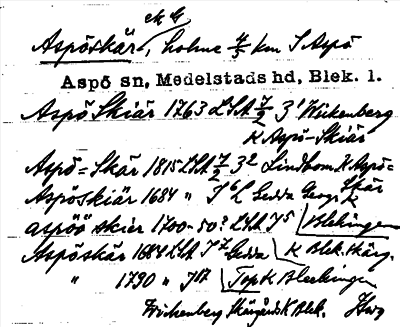 Aspöskär, holme 4/5 km S Aspö
Aspö sn, Medelstads hd, Blek. l.
Aspö Skiär 1763 LSA 7/2 3¹ Wickenberg
K Aspö-Skiär
Aspö=Skär 1815 LSA 7/2 3² Lindbom K Aspö=
Skär
Aspöskiär 1684 " J⁶ Gedda
aspöö skier 1700-50? LSA J⁵ Blekingen
Aspöskär 1684 LSA J⁷ Gedda K Blek. skärg.
" 1790 " J¹⁷ Top K Bleckingen
Wickenberg Skärgårds K Blek.